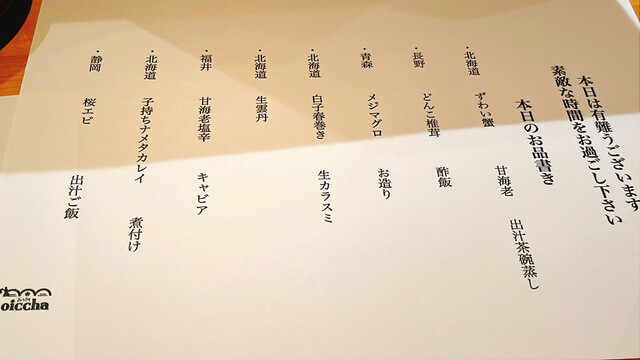 本日は有難うございます
素敵な時間をお過ごし下さい
本日のお品書き
・北海道 ずわい蟹 甘海老 出汁茶碗蒸し
・長野 どんこ椎茸 酢飯
・青森 メジマグロ お造り
・北海道 白子春巻き 生カラスミ
・北海道 生雲丹
・福井 甘海老塩辛 キャビア
・北海道 子持ちナメタカレイ 煮付け
・静岡 桜エビ 出汁ご飯
oiccha